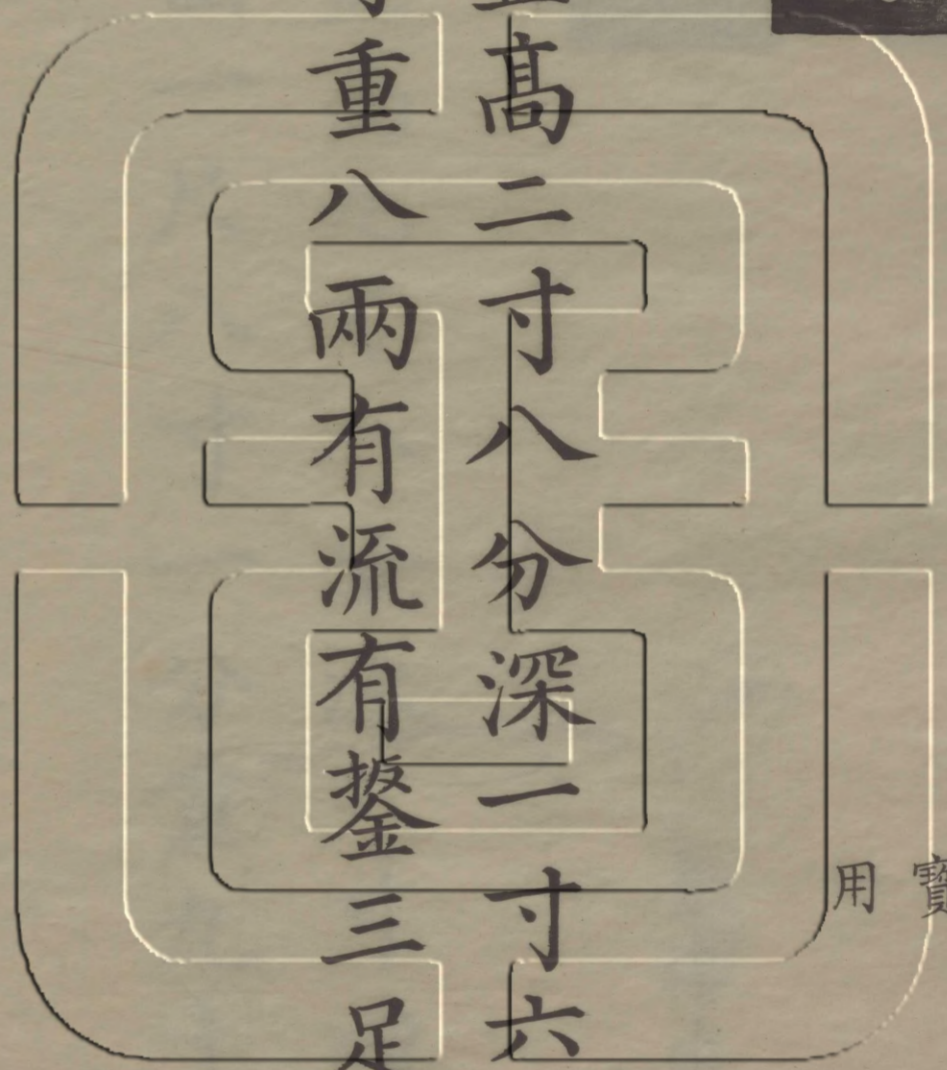 寶
用
高二寸八分深一寸六
重八兩有流有鋬三足